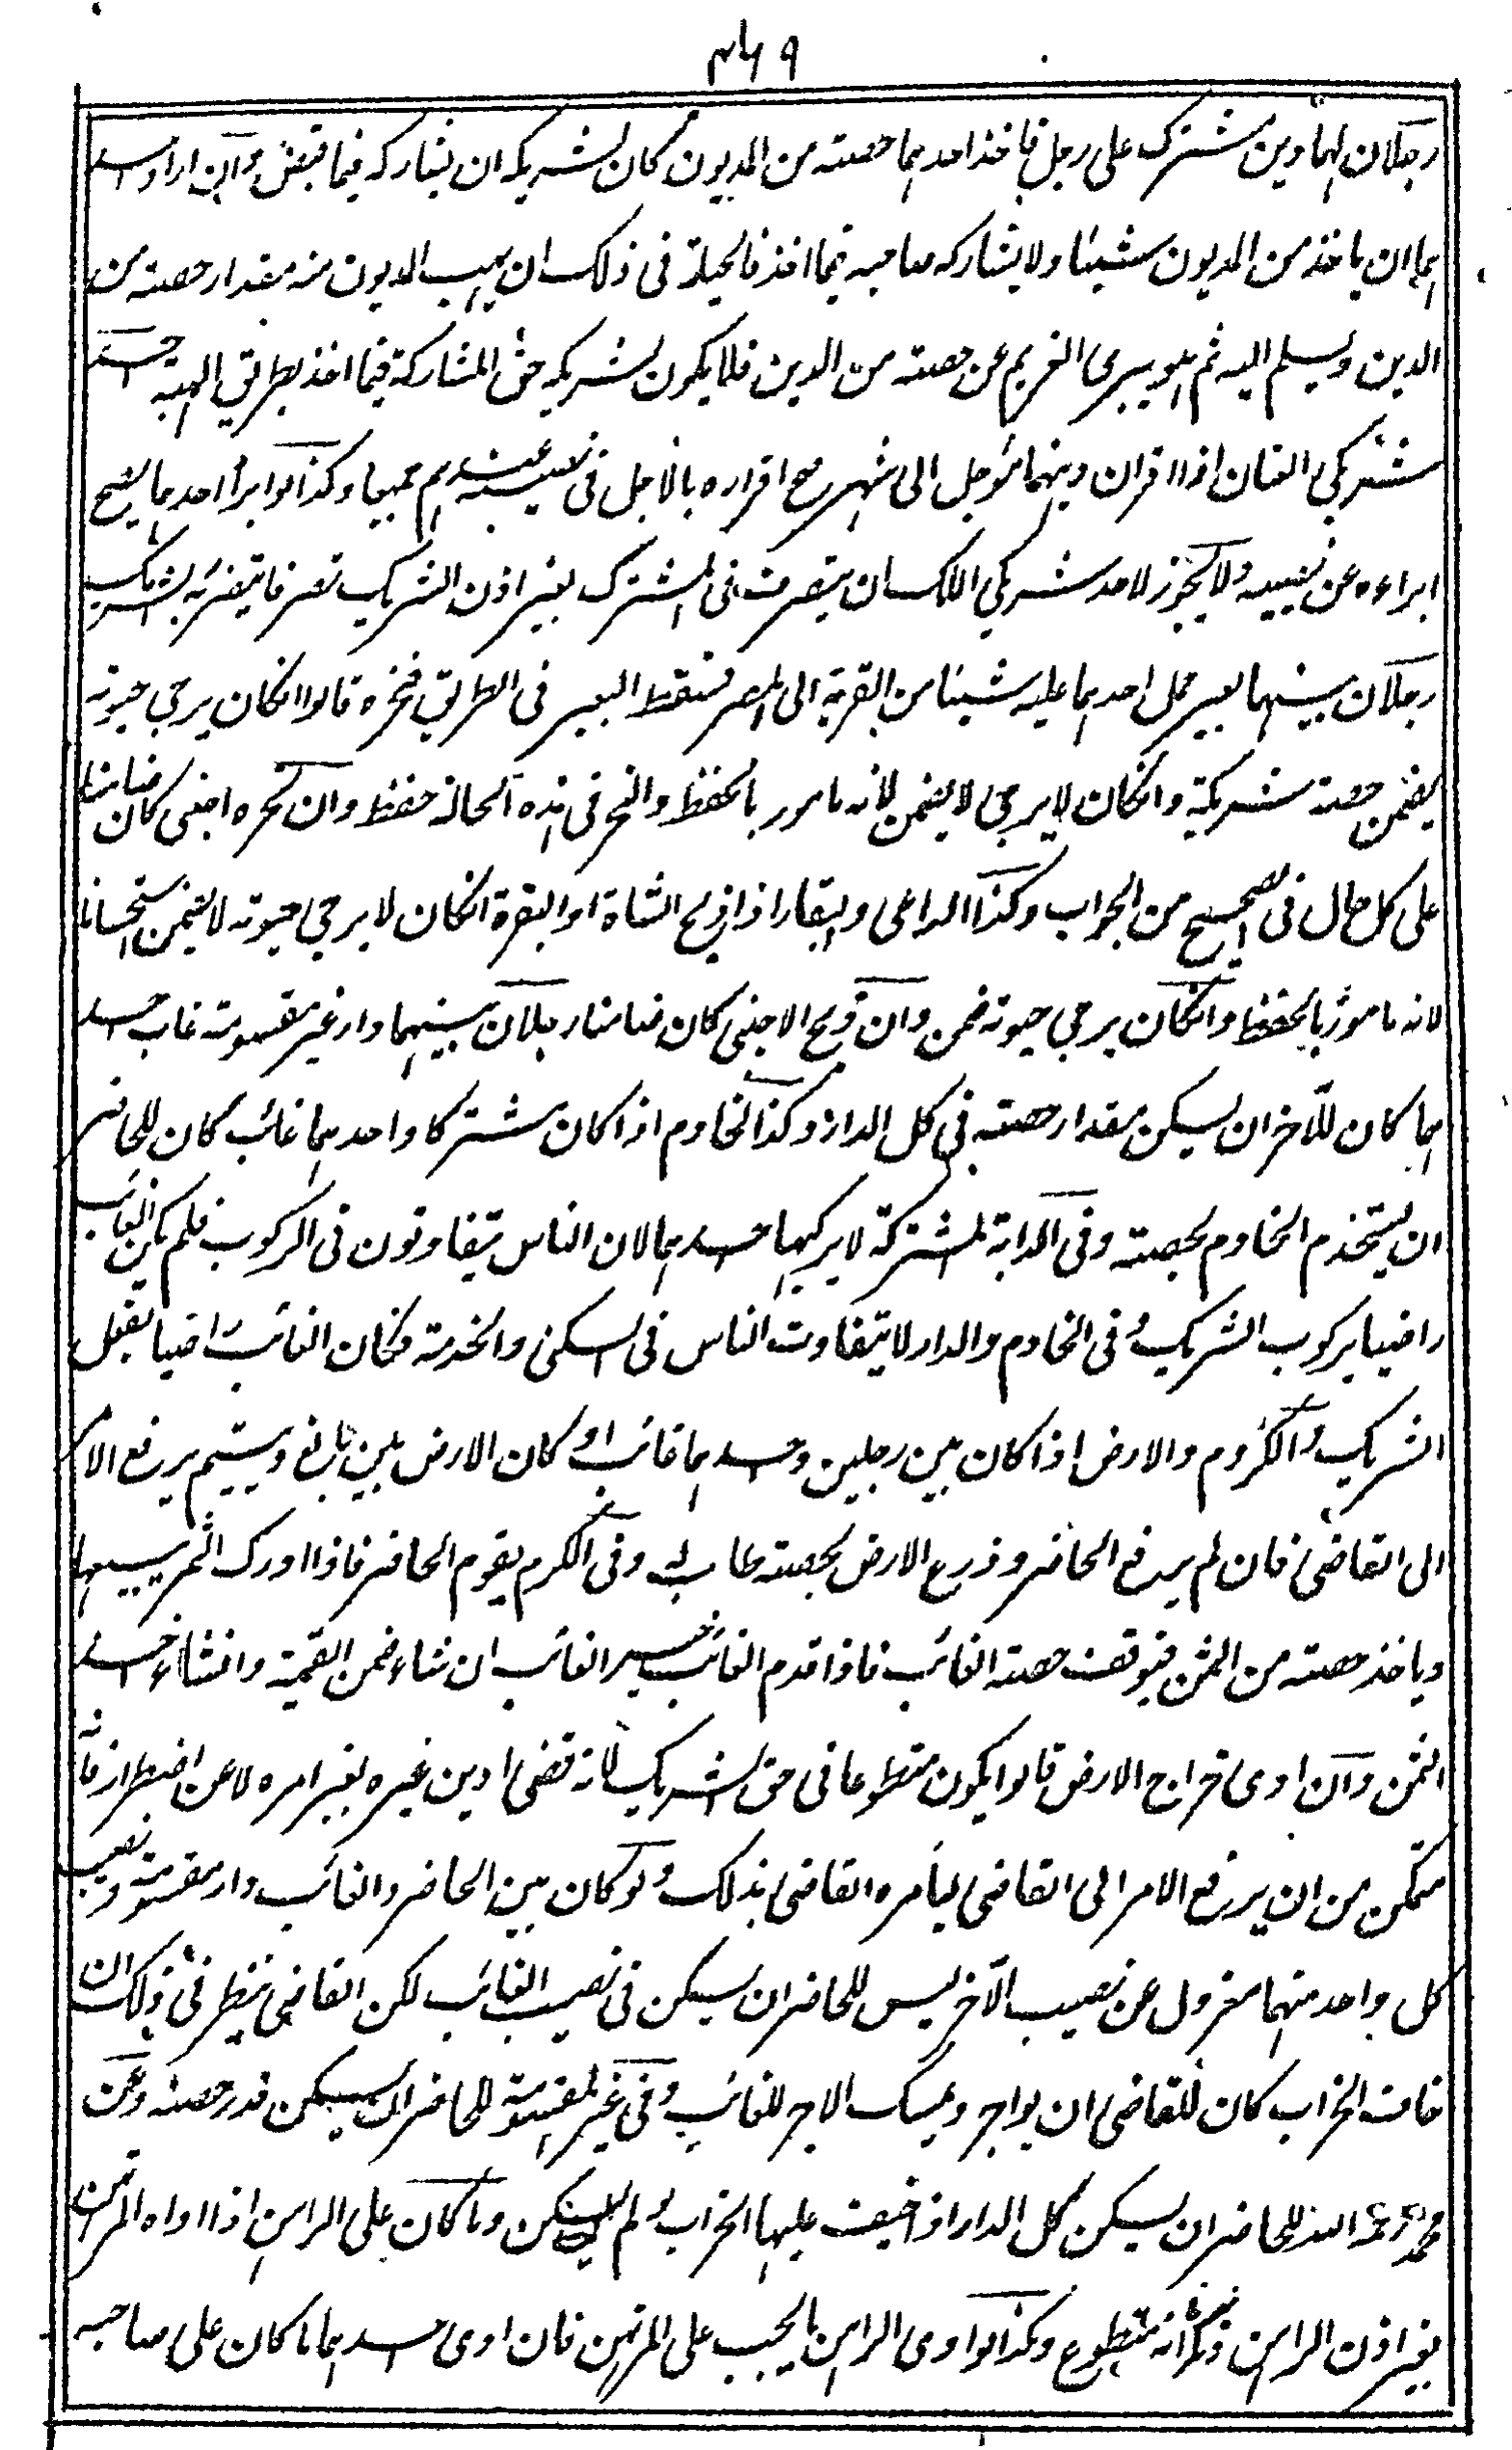 ٣٦٩
رجلان لهما دين مشترك على رجل فاخذ احدهما حصته من المديون كان لشريكه ان يشاركه فيما قبض وان اراد احد
هما ان ياخذ من المديون شيئا ولا يشاركه صاحبه فيما اخذ فالحيلة فى ذلك ان يهب المديون منه مقدار حصته من
الدين ويسلم اليه ثم هو يبرى الغريم عن حصته من الدين فلا يكون لشريكه حق المشاركة فيما اخذ بطريق الهبة احد
شريكى العنان اذا اقر ان دينهما مؤجل الى شهر صح اقراره بالاجل فى نصيبه عندهم جميعا وكذا لو ابرأ احدهما يصح
ابراءه عن نصيبه ولا يجوز لاحد شريكى الملك ان يتصرف فى المشترك بغير اذن الشريك تصرفا يتضرر به الشريك
رجلان بينهما بعير حمل احدهما عليه شيئا من القرية الى المصر فسقط البعير فى الطريق فنحره قالوا انكان يرجى حيوته
يضمن حصته شريكه وانكان لا يرجى لا يضمن لانه مامور بالحفظ والنحر فى هذه الحالة حفظ وان نحره اجنبى كان ضامنا
على كل حال فى الصحيح من الجواب وكذا الراعى والبقار اذا ذبح الشاة او البقرة انكان لا يرجى حيوته لا يضمن استحسانا
لانه مامور بالحفظ وانكان يرجى حيوته ضمن وان ذبح الاجنبى كان ضامنا رجلان بينهما دار غير مقسومة غاب احد
هما كان للآخر ان يسكن مقدار حصته فى كل الدار وكذا الخادم اذا كان مشتركا واحدهما غائب كان للحاضر
ان يستخدم الخادم بحصته وفى الدابة المشتركة لا يركبها احدهما لان الناس يتفاوتون فى الركوب فلم يكن الغائب
راضيا بركوب الشريك وفى الخادم والدار لا يتفاوت الناس فى السكنى والخدمة فكان الغائب راضيا بفعل
الشريك والكروم والارض اذا كان بين رجلين واحدهما غائب او كان الارض بين بالغ ويتيم يرفع الامر
الى القاضى فان لم يرفع الحاضر وزرع الارض بحصته طاب له وفى الكرم يقوم الحاضر فاذا ادرك الثمر يبيعها
وياخذ حصته من الثمن فتوقف حصة الغائب فاذا قدم الغائب خير الغائب ان شاء ضمن القيمة وانشاء اخذ
الثمن وان ادى خراج الارض قالوا يكون متطوعا فى حق الشريك لانه قضى دين غيره بغير امره لا عن اضطرار فانه
متمكن من ان يرفع الامر الى القاضى ليأمره القاضى بذلك ولو كان بين الحاضر والغائب دار مقسومة ونصيب
كل واحد منهما مفرول عن نصيب الآخر ليس للحاضر ان يسكن فى نصيب الغائب لكن القاضى ينظر فى ذلك ان
خاف الخراب كان للقاضى ان يواجر ويمسك الاجر للغائب وفى غير المقسومة للحاضر ان يسكن قدر حصته وعن
محمد رحمه الله للحاضر ان يسكن كل الدار اذا خيفت عليها الخراب لو لم يسكن وما كان على الراهن اذا اداه المرتهن
بغير اذن الراهن فهو متطوع وكذا لو ادى الراهن ما يجب على المرتهن فان ادى احدهما ما كان على صاحبه